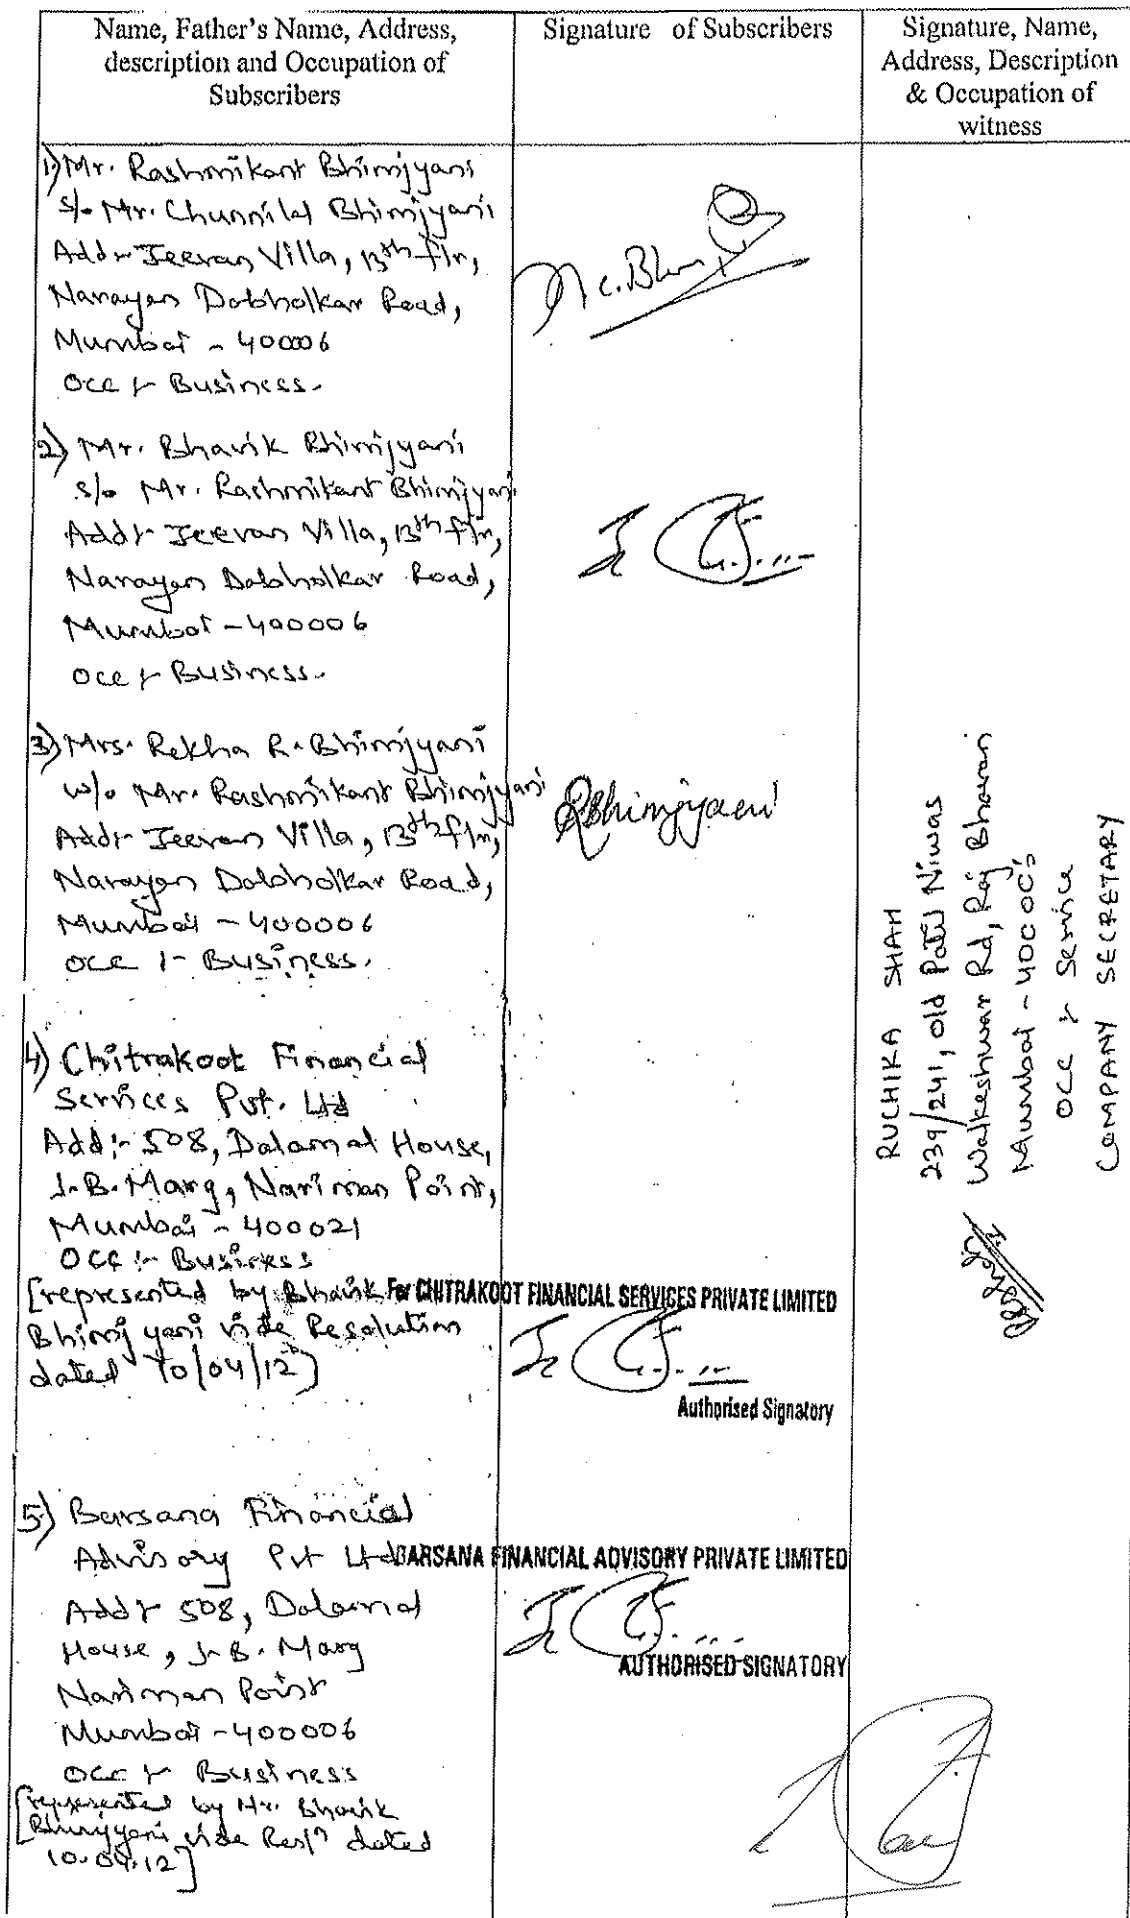 Name, Father's Name, Address,
description and Occupation of
Subscribers
Signature of Subscribers
Signature, Name,
Address, Description
& Occupation of
witness
1) Mr. Rashmikant Bhimjyani
s/o Mr. Chunnilal Bhimjyani
Add:- Jeevan Villa, 13th flr,
Narayan Dabholkar Road,
Mumbai - 400006
Occ :- Business.
2) Mr. Bhavik Bhimjyani
s/o Mr. Rashmikant Bhimjyani
Add:- Jeevan Villa, 13th flr,
Narayan Dabholkar Road,
Mumbai - 400006
Occ :- Business.
3) Mrs. Rekha R. Bhimjyani
w/o Mr. Rashmikant Bhimjyani
Add:- Jeevan Villa, 13th flr,
Narayan Dabholkar Road,
Mumbai - 400006
Occ :- Business.
RBhimjyani
4) Chitrakoot Financial
Services Pvt. Ltd
Add:- 508, Dalamal House,
J.B. Marg, Nariman Point,
Mumbai - 400021
Occ :- Business
[represented by Bhavik
Bhimjyani vide Resolution
dated 10/04/12]
For CHITRAKOOT FINANCIAL SERVICES PRIVATE LIMITED
Authorised Signatory
5) Barsana Financial
Advisory Pvt Ltd
Add:- 508, Dalamal
House, J.B. Marg
Nariman Point
Mumbai - 400006
Occ :- Business
[represented by Mr. Bhavik
Bhimjyani vide Resln dated
10.04.12]
BARSANA FINANCIAL ADVISORY PRIVATE LIMITED
AUTHORISED SIGNATORY
RUCHIKA SHAH
239/241, Old Patil Niwas
Walkeshwar Rd, Raj Bhavan
Mumbai -
Occ :- Service
COMPANY SECRETARY